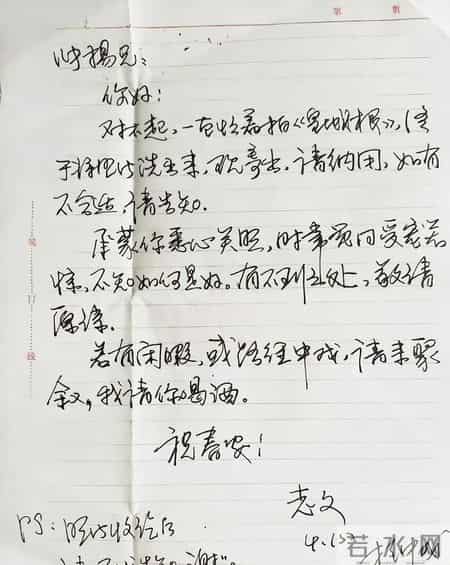 第 頁
叶扬兄：
你好！
对不起，一直忙着拍《皇城根》，终
于将照片洗出来，现寄出，请纳用，如有
不合适，请告知。
承蒙你悉心关照，时常觉的受宠若
惊，不知如何是好。有不到之处，敬请
原谅。
若有闲暇，或路经中戏，请来聚
叙，我请你喝酒。
祝春安！
志文
4.1
PS：照片收给后